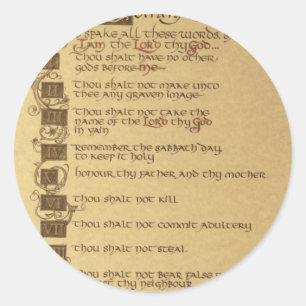 spake all these words, s
I am the Lord thy God...
Thou shalt have no other
gods before me
II Thou shalt not make unto
thee any graven image
III Thou shalt not take the
name of the Lord thy God
in vain
Remember the sabbath day
to keep it holy
V honour thy father and thy mother
VI Thou shalt not kill
VII Thou shalt not commit adultery
Thou shalt not steal
thou shalt not bear false
thy neighbour